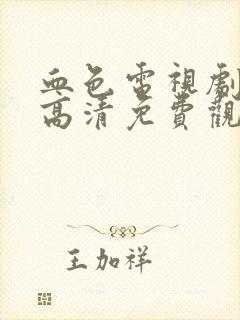 血色電視劇
高清免費觀
王加祥